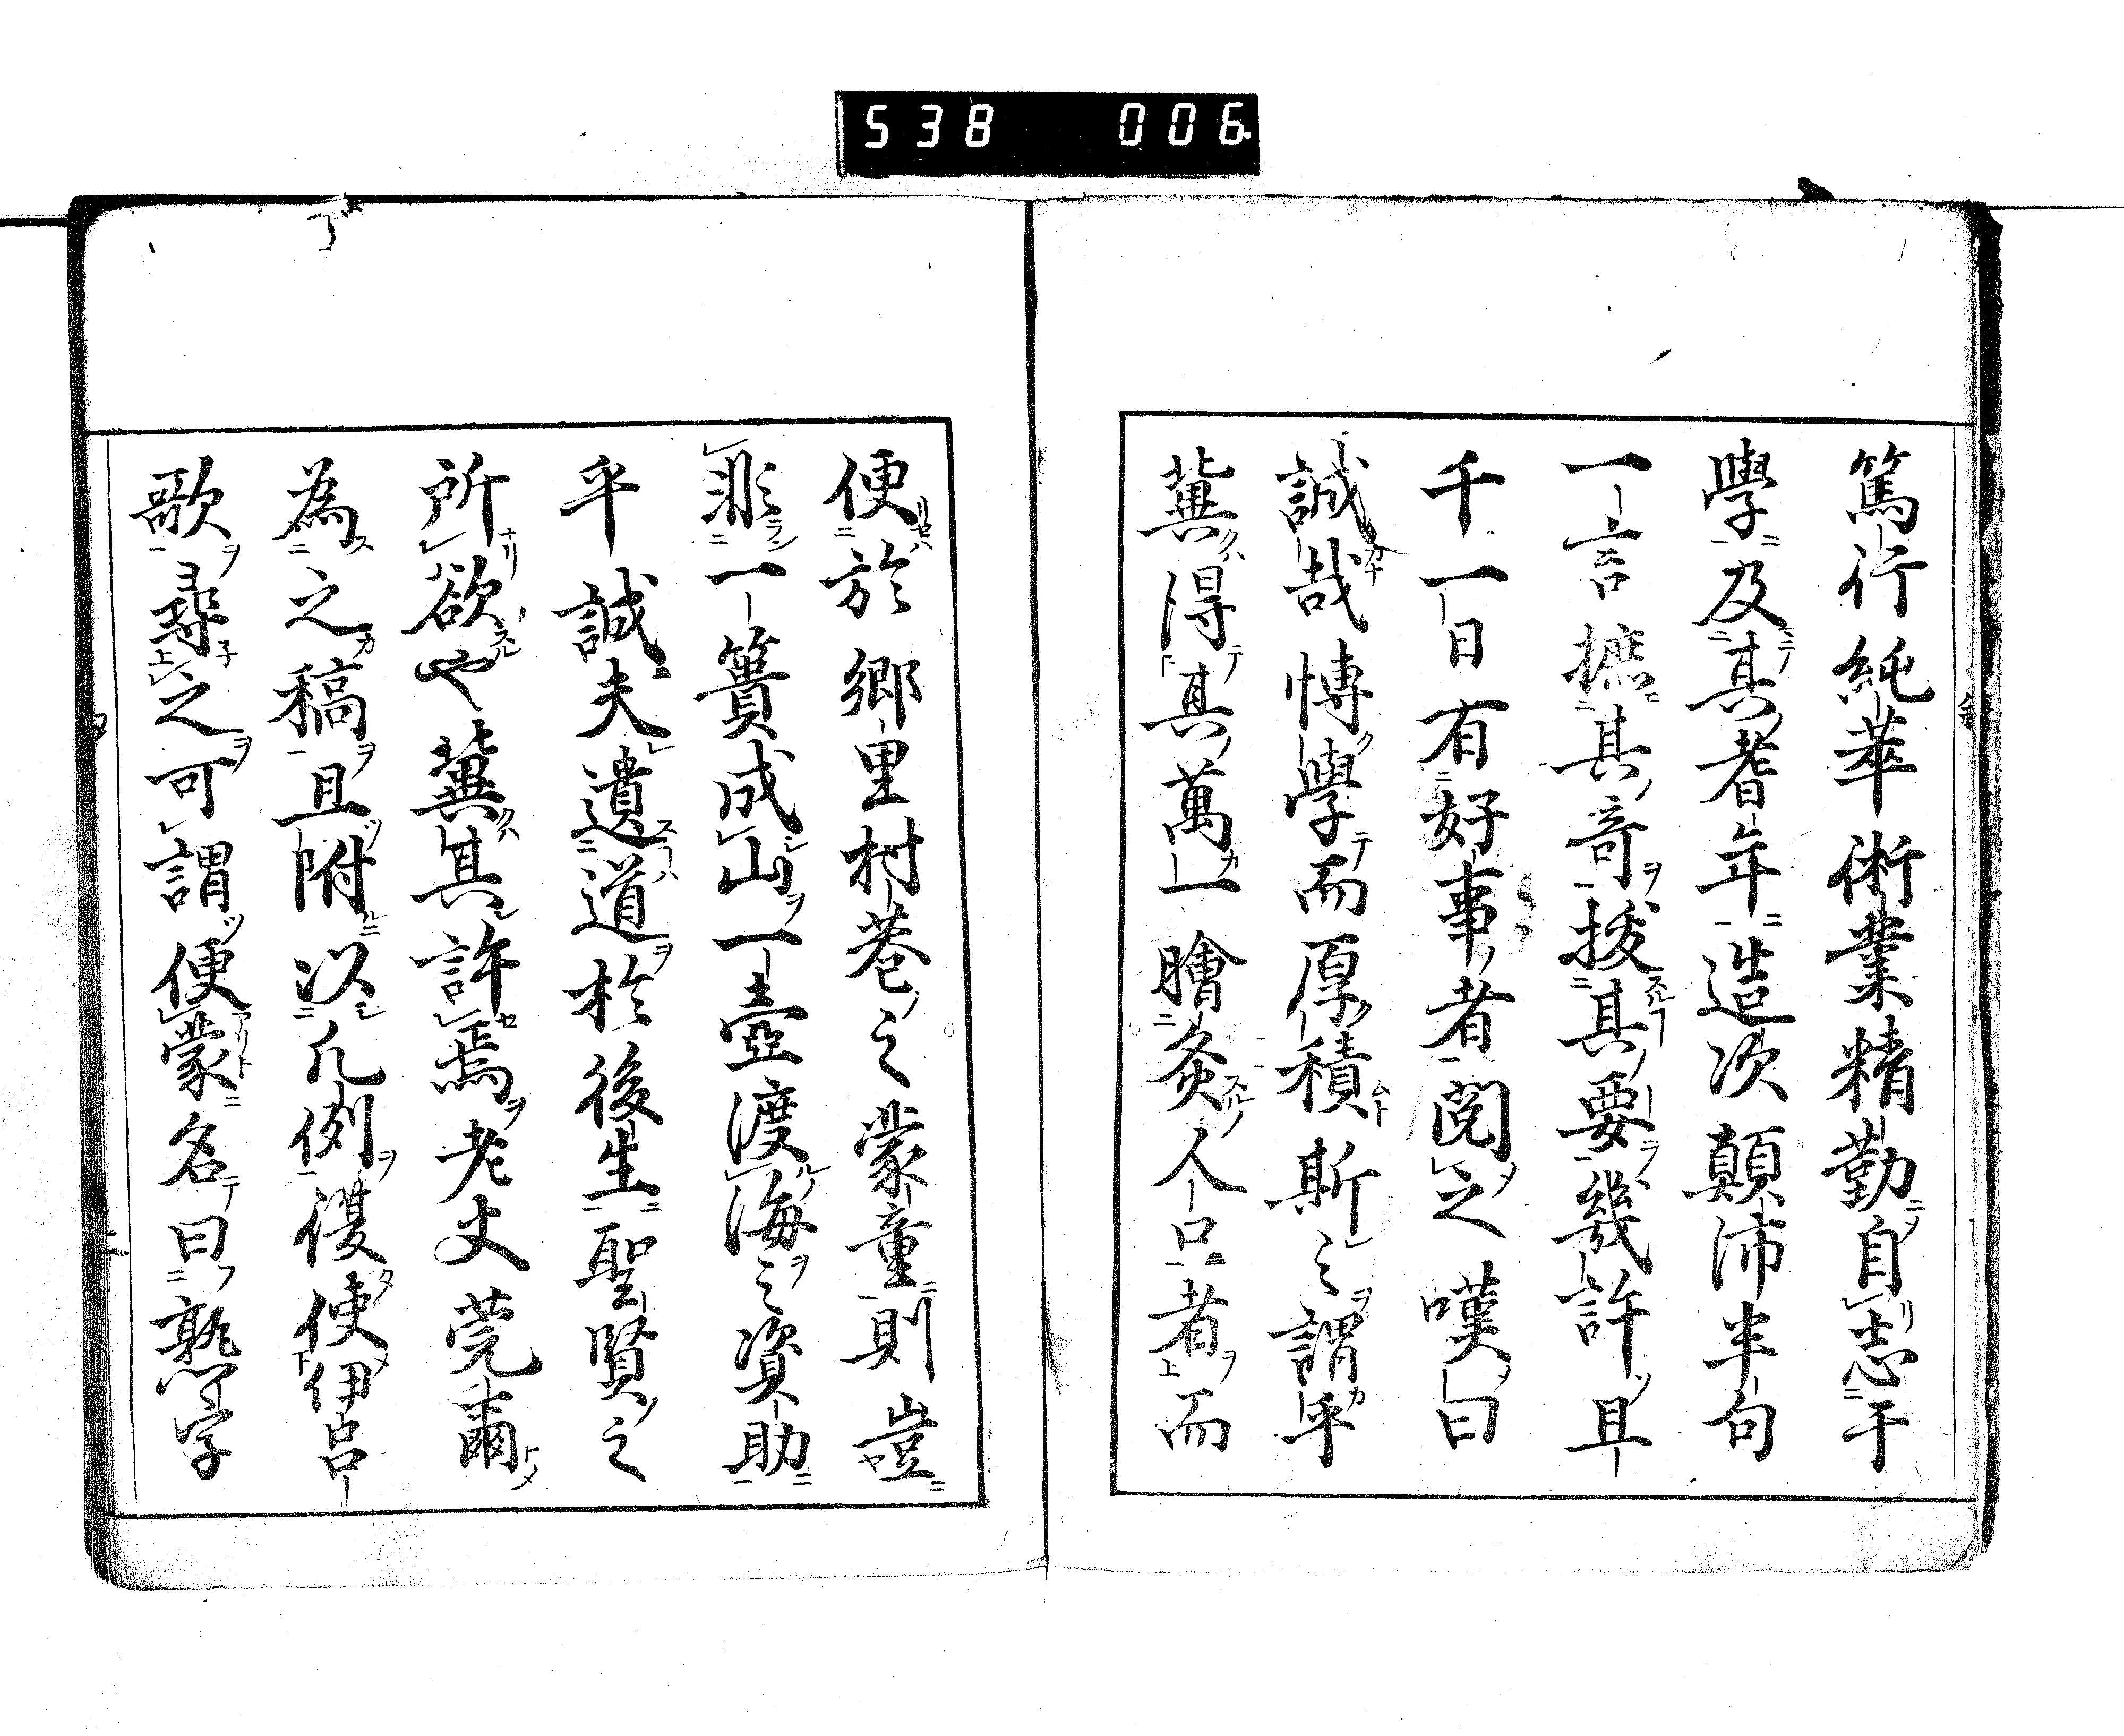 538 006
篤行純萃術業精勤自志于
學及其耆年造次顛沛半句
一言摭其奇拔其要幾許且
千一日有好事者閲之嘆曰
誠哉博學而厚積斯之謂乎
冀得其萬一膾炙人口者而
便於郷里村巷之蒙童則豈
非一簣成山一壺渡海之資助
乎誠夫遺道於後生聖賢之
所欲也冀其許焉老丈莞爾
為之稿且附以凡例復使伊呂
歌尋之可謂便蒙名曰熟字